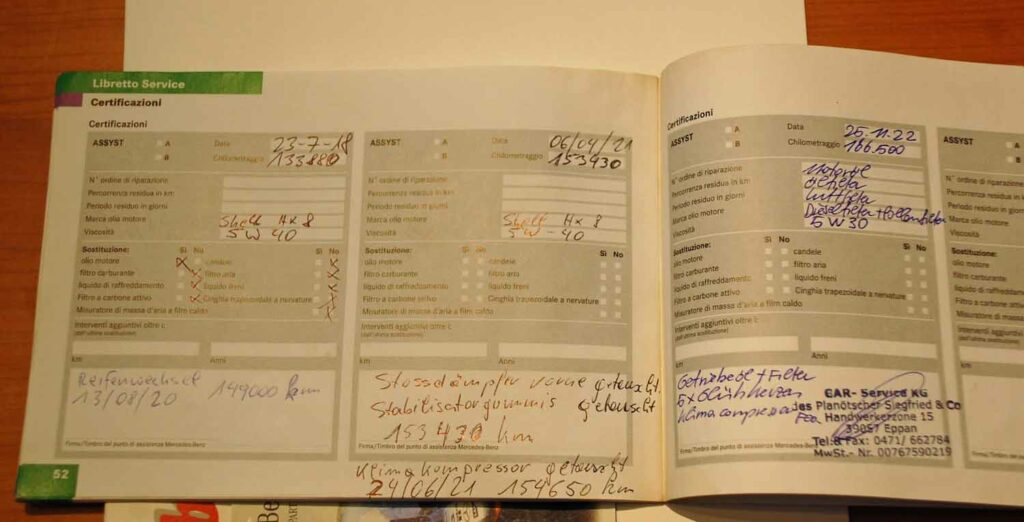 Libretto Service
Certificazioni
Certificazioni
ASSYST
A
B
Data 23-7-18
Chilometraggio 133880
N° ordine di riparazione
Percorrenza residua in km:
Periodo residuo in giorni
Marca olio motore Shell Hx 8
Viscosità 5W40
Sostituzione: Sì No Sì No
olio motore candele
filtro carburante filtro aria
liquido di raffreddamento liquido freni
Filtro a carbone attivo Cinghia trapezoidale a nervature
Misuratore di massa d'aria a film caldo
Interventi aggiuntivi oltre i:
(dall'ultima sostituzione)
km Anni
Reifenwechsel
13/08/20 149000 km
Firma/Timbro del punto di assistenza Mercedes-Benz
52
ASSYST
A
B
Data 06/04/21
Chilometraggio 153430
N° ordine di riparazione
Percorrenza residua in km:
Periodo residuo in giorni
Marca olio motore Shell Hx 8
Viscosità 5W-40
Sostituzione: Sì No Sì No
olio motore candele
filtro carburante filtro aria
liquido di raffreddamento liquido freni
Filtro a carbone attivo Cinghia trapezoidale a nervature
Misuratore di massa d'aria a film caldo
Interventi aggiuntivi oltre i:
(dall'ultima sostituzione)
km Anni
Stossdämpfer vorne getauscht.
Stabilisatorgummis getauscht
153430 km
Firma/Timbro del punto di assistenza Mercedes-Benz
Klimakompressor getauscht
24/06/21 154650 km
Certificazioni
ASSYST
A
B
Data 25.11.22
Chilometraggio 166.500
N° ordine di riparazione Motoröl
Percorrenza residua in km: Ölfilter
Periodo residuo in giorni Luftfilter
Marca olio motore Dieselfilter + Pollenfilter
Viscosità 5W30
Sostituzione: Sì No Sì No
olio motore candele
filtro carburante filtro aria
liquido di raffreddamento liquido freni
Filtro a carbone attivo Cinghia trapezoidale a nervature
Misuratore di massa d'aria a film caldo
Interventi aggiuntivi oltre i:
(dall'ultima sostituzione)
km Anni
Getriebeöl + Filter
5x Glühkerzen
CAR- Service KG
des Planötscher Siegfried & Co
Handwerkerzone 15
39057 Eppan
Tel.& Fax: 0471/ 662784
MwSt.- Nr. 00767590219
Firma/Timbro del punto di assistenza Mercedes-Benz
ASSYST